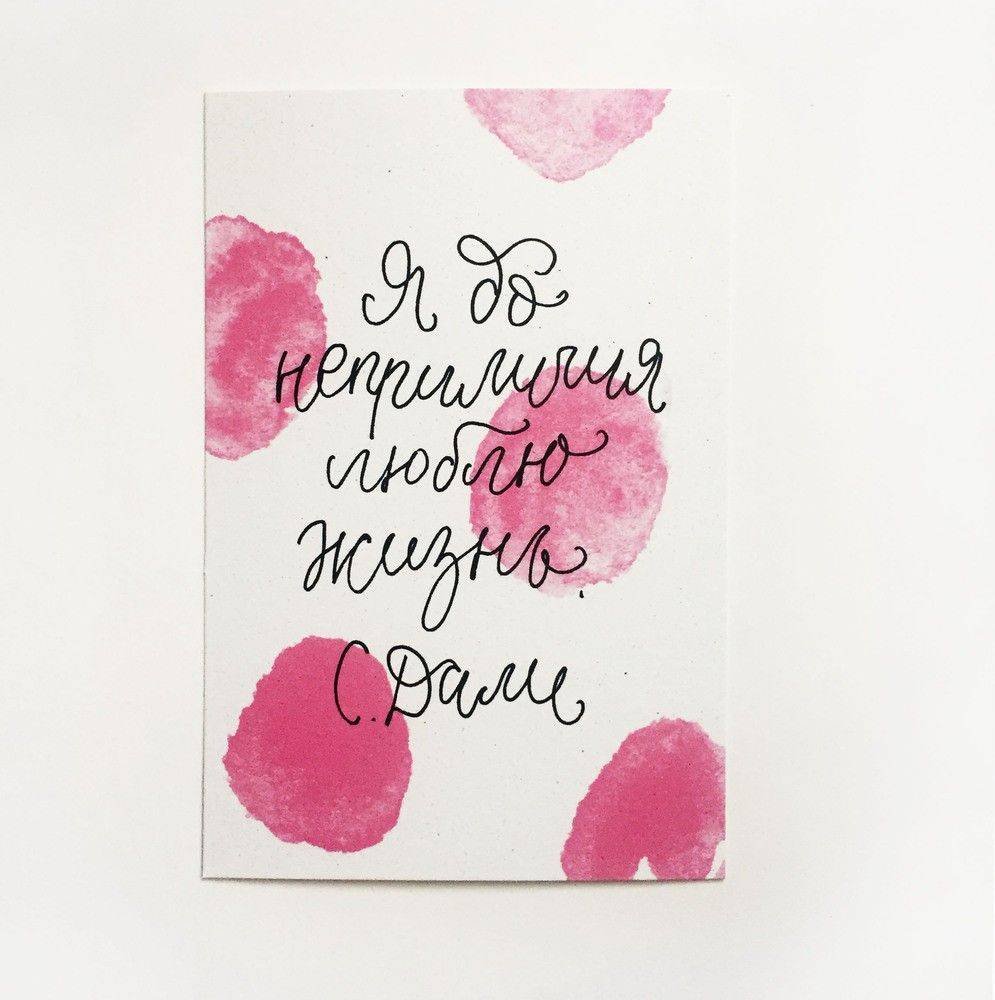 Я до
неприличия
люблю
жизнь.
С. Дали